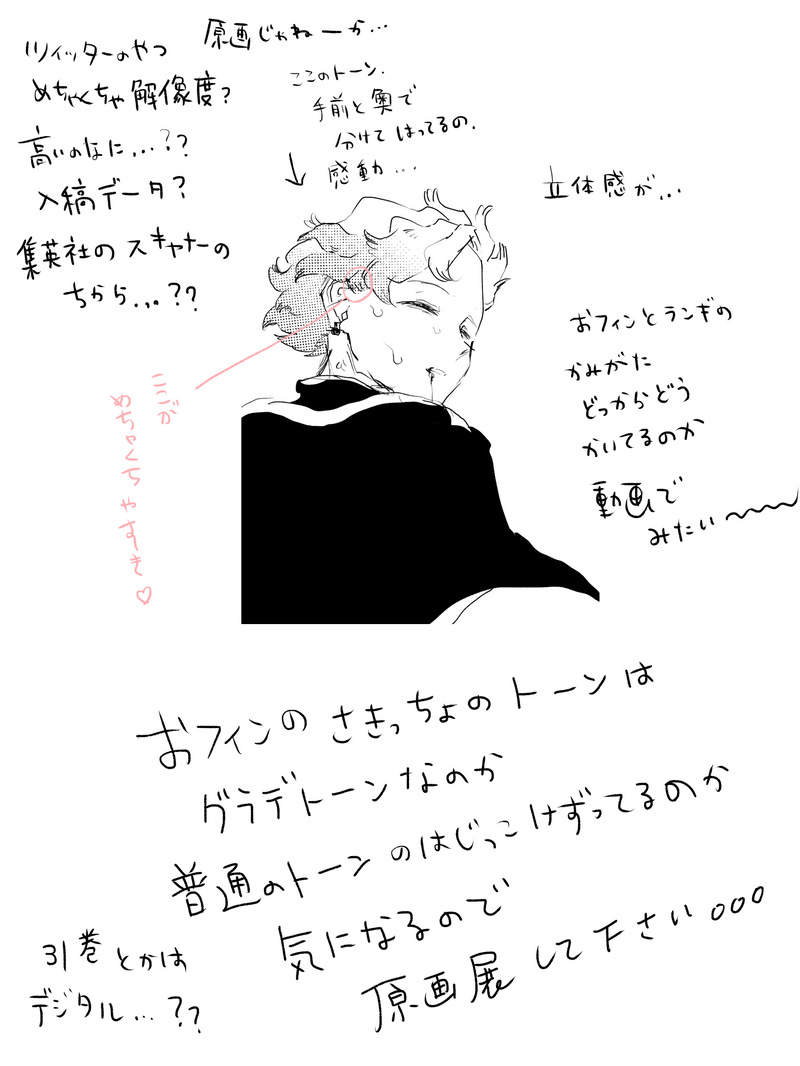 原画じゃねーか…
ツイッターのやつ
めちゃくちゃ解像度?
高いのなに...??
入稿データ?
集英社のスキャナーの
ちから...??
ここのトーン.
手前と奥で
分けてはってるの.
感動...
立体感が...
おフィンとランギの
かみがた
どっからどう
かいてるのか
動画で
みたい〜〜〜
ここが
めちゃくちゃすき♡
おフィンのさきっちょのトーンは
グラデトーンなのか
普通のトーンのはじっこけずってるのか
気になるので
原画展して下さい○○○
31巻とかは
デジタル...??